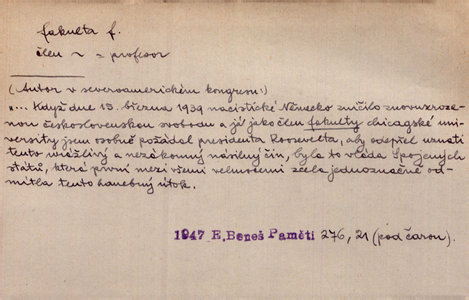 fakulta f.
člen ~ = profesor
(Autor v severoamerickém kongresu:)
"... Když dne 15. března 1939 nacistické Německo zničilo znovuzroze-
nou československou svobodu a já jako člen fakulty chicagské uni-
versity jsem osobně požádal presidenta Roosevelta, aby odepřel uznati
tento urážlivý a nezákonný násilný čin, byla to vláda Spojených
států, která první mezi všemi velmocemi zcela jednoznačně od-
mítla tento hanebný útok.
1947 E. Beneš Paměti 276, 21 (pod čarou).